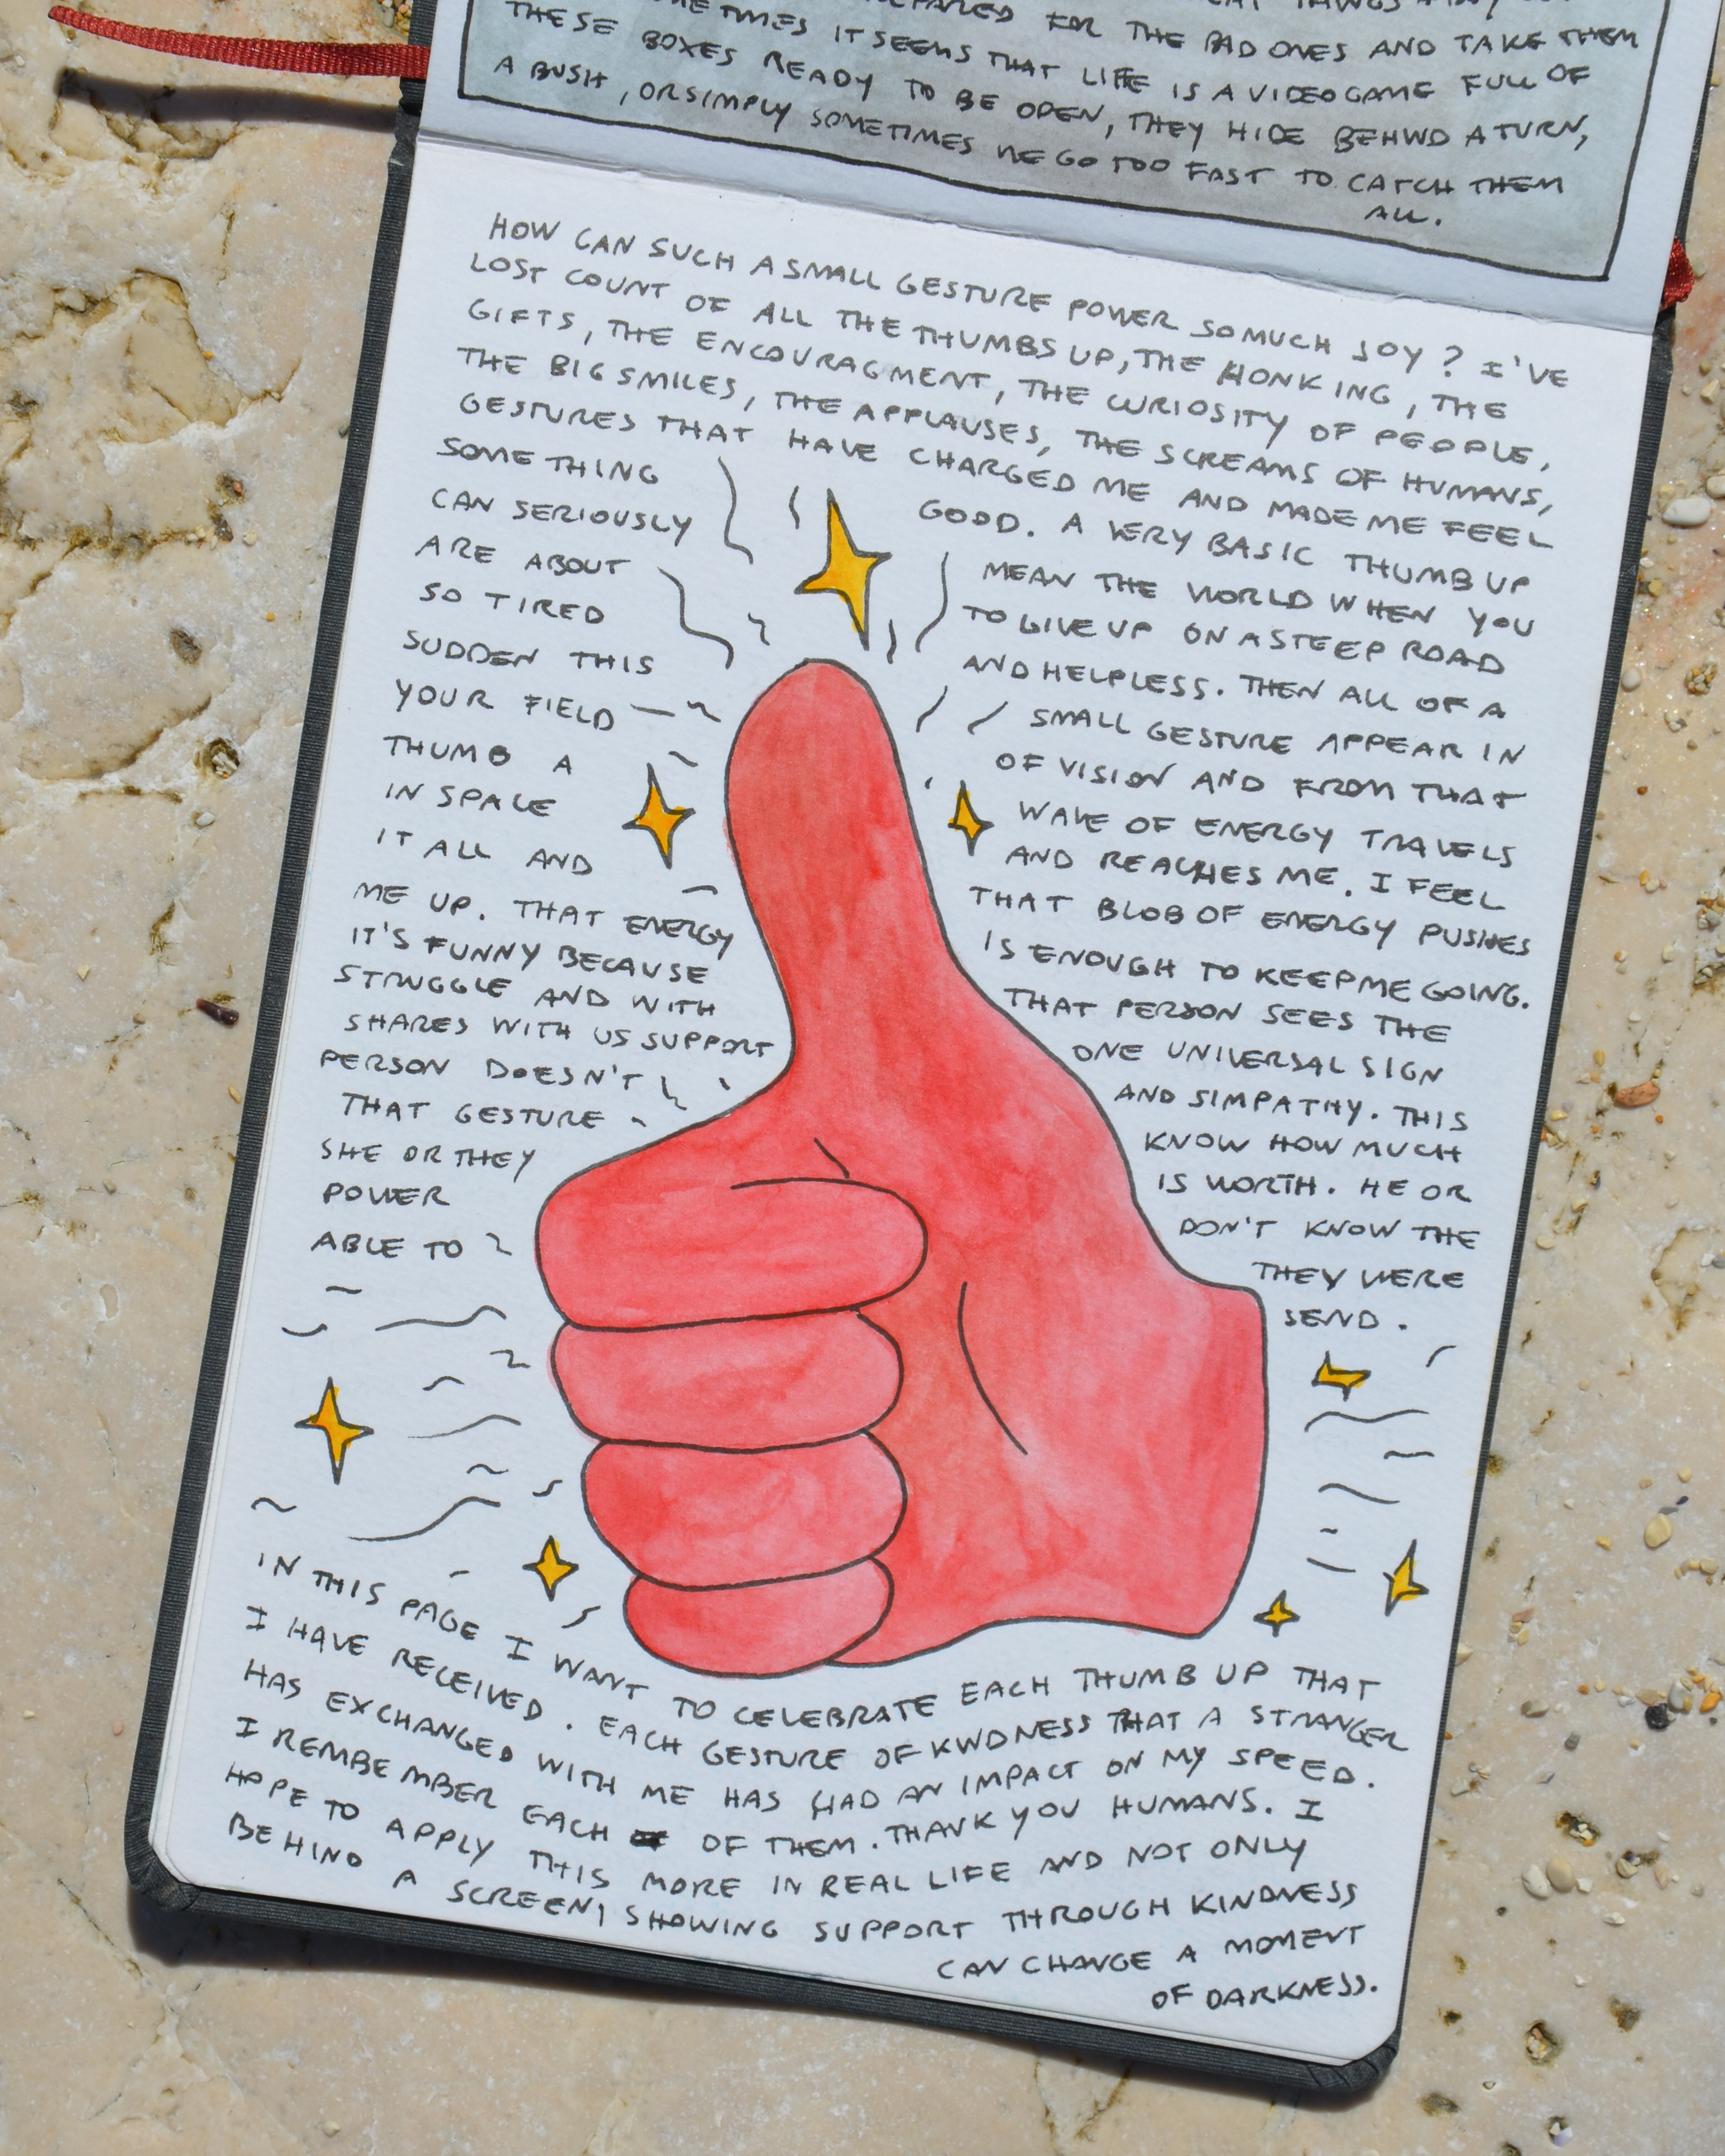 FOR THE BAD ONES AND TAKE THEM
IT SEEMS THAT LIFE IS A VIDEOGAME FULL OF
THESE BOXES READY TO BE OPEN, THEY HIDE BEHIND A TURN,
A BUSH, OR SIMPLY SOMETIMES WE GO TOO FAST TO CATCH THEM
ALL.
HOW CAN SUCH A SMALL GESTURE POWER SO MUCH JOY? I'VE
LOST COUNT OF ALL THE THUMBS UP, THE HONKING, THE
GIFTS, THE ENCOURAGMENT, THE CURIOSITY OF PEOPLE,
THE BIG SMILES, THE APPLAUSES, THE SCREAMS OF HUMANS,
GESTURES THAT HAVE CHARGED ME AND MADE ME FEEL
SOMETHING GOOD. A VERY BASIC THUMB UP
CAN SERIOUSLY MEAN THE WORLD WHEN YOU
ARE ABOUT TO GIVE UP ON A STEEP ROAD
SO TIRED AND HELPLESS. THEN ALL OF A
SUDDEN THIS SMALL GESTURE APPEAR IN
YOUR FIELD OF VISION AND FROM THAT
THUMB A WAVE OF ENERGY TRAVELS
IN SPACE AND REACHES ME. I FEEL
IT ALL AND THAT BLOB OF ENERGY PUSHES
ME UP. THAT ENERGY IS ENOUGH TO KEEP ME GOING.
IT'S FUNNY BECAUSE THAT PERSON SEES THE
STRUGGLE AND WITH ONE UNIVERSAL SIGN
SHARES WITH US SUPPORT AND SIMPATHY. THIS
PERSON DOESN'T KNOW HOW MUCH
THAT GESTURE IS WORTH. HE OR
SHE OR THEY DON'T KNOW THE
POWER THEY WERE
ABLE TO SEND.
IN THIS PAGE I WANT TO CELEBRATE EACH THUMB UP THAT
I HAVE RECEIVED. EACH GESTURE OF KINDNESS THAT A STRANGER
HAS EXCHANGED WITH ME HAS HAD AN IMPACT ON MY SPEED.
I REMBEMBER EACH OF THEM. THANK YOU HUMANS. I
HOPE TO APPLY THIS MORE IN REAL LIFE AND NOT ONLY
BEHIND A SCREEN, SHOWING SUPPORT THROUGH KINDNESS
CAN CHANGE A MOMENT
OF DARKNESS.